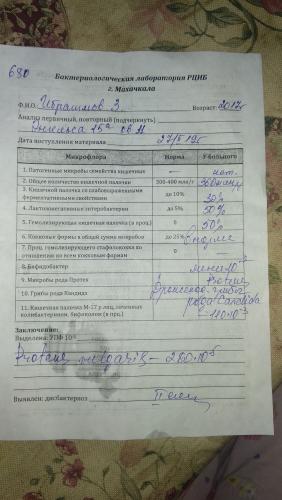 680
Бактериологическая лаборатория РЦИБ
г. Махачкала
Ф.И.О. Ибрагимов З. Возраст: 2017г
Анализ первичный, повторный (подчеркнуть)
Энгельса 15а кв 11
Дата поступления материала 27/5 19г
Микрофлора Норма У больного
1. Патогенные микробы семейства кишечные — нет.
2. Общее количество кишечной палочки 300-400 млн/г 360 млн/г
3. Кишечная палочка со слабовыраженными ферментативными свойствами до 10% 30%
4. Лактозонегативные энтеробактерии до 5% 50%
5. Гемолизирующая кишечная палочка (в проц.) 0 50%
6. Кокковые формы в общей сумме микробов до 25%
7. Проц. гемолизирующего стафилококка по отношению ко всем кокковым формам 0 —
8. Бифидобактер
9. Микробы рода Протея
10. Грибы рода Кандида
11. Кишечная палочка М-17 у лиц, леченных колибактерином, бификолом (в прц.)
Заключение:
Выделена: УПФ 10
Proteus vulgaris – 280·10
Выявлен: дисбактериоз